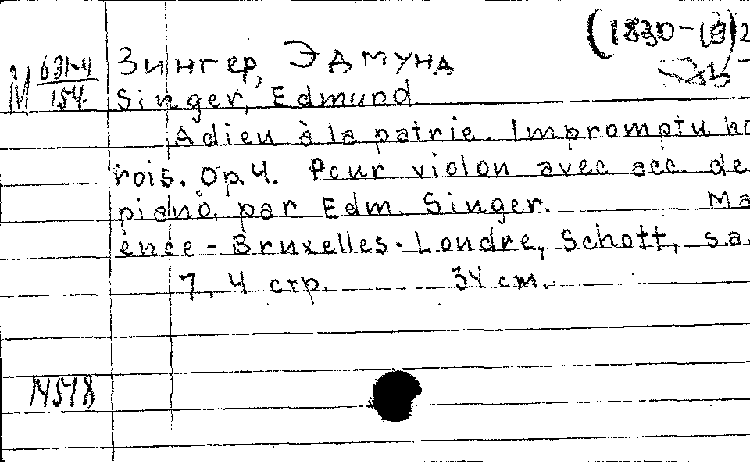 (1830-19)2
Зингер, Эдмунд
М 631-4
154
Singer, Edmund
Adieu à la patrie. Impromptu ho
rois. Op. 4. Pour violon avec acc. de
piano par Edm. Singer. Ma
ence - Bruxelles - Londre, Schott, s.a.
7, 4 стр. 34 cm.